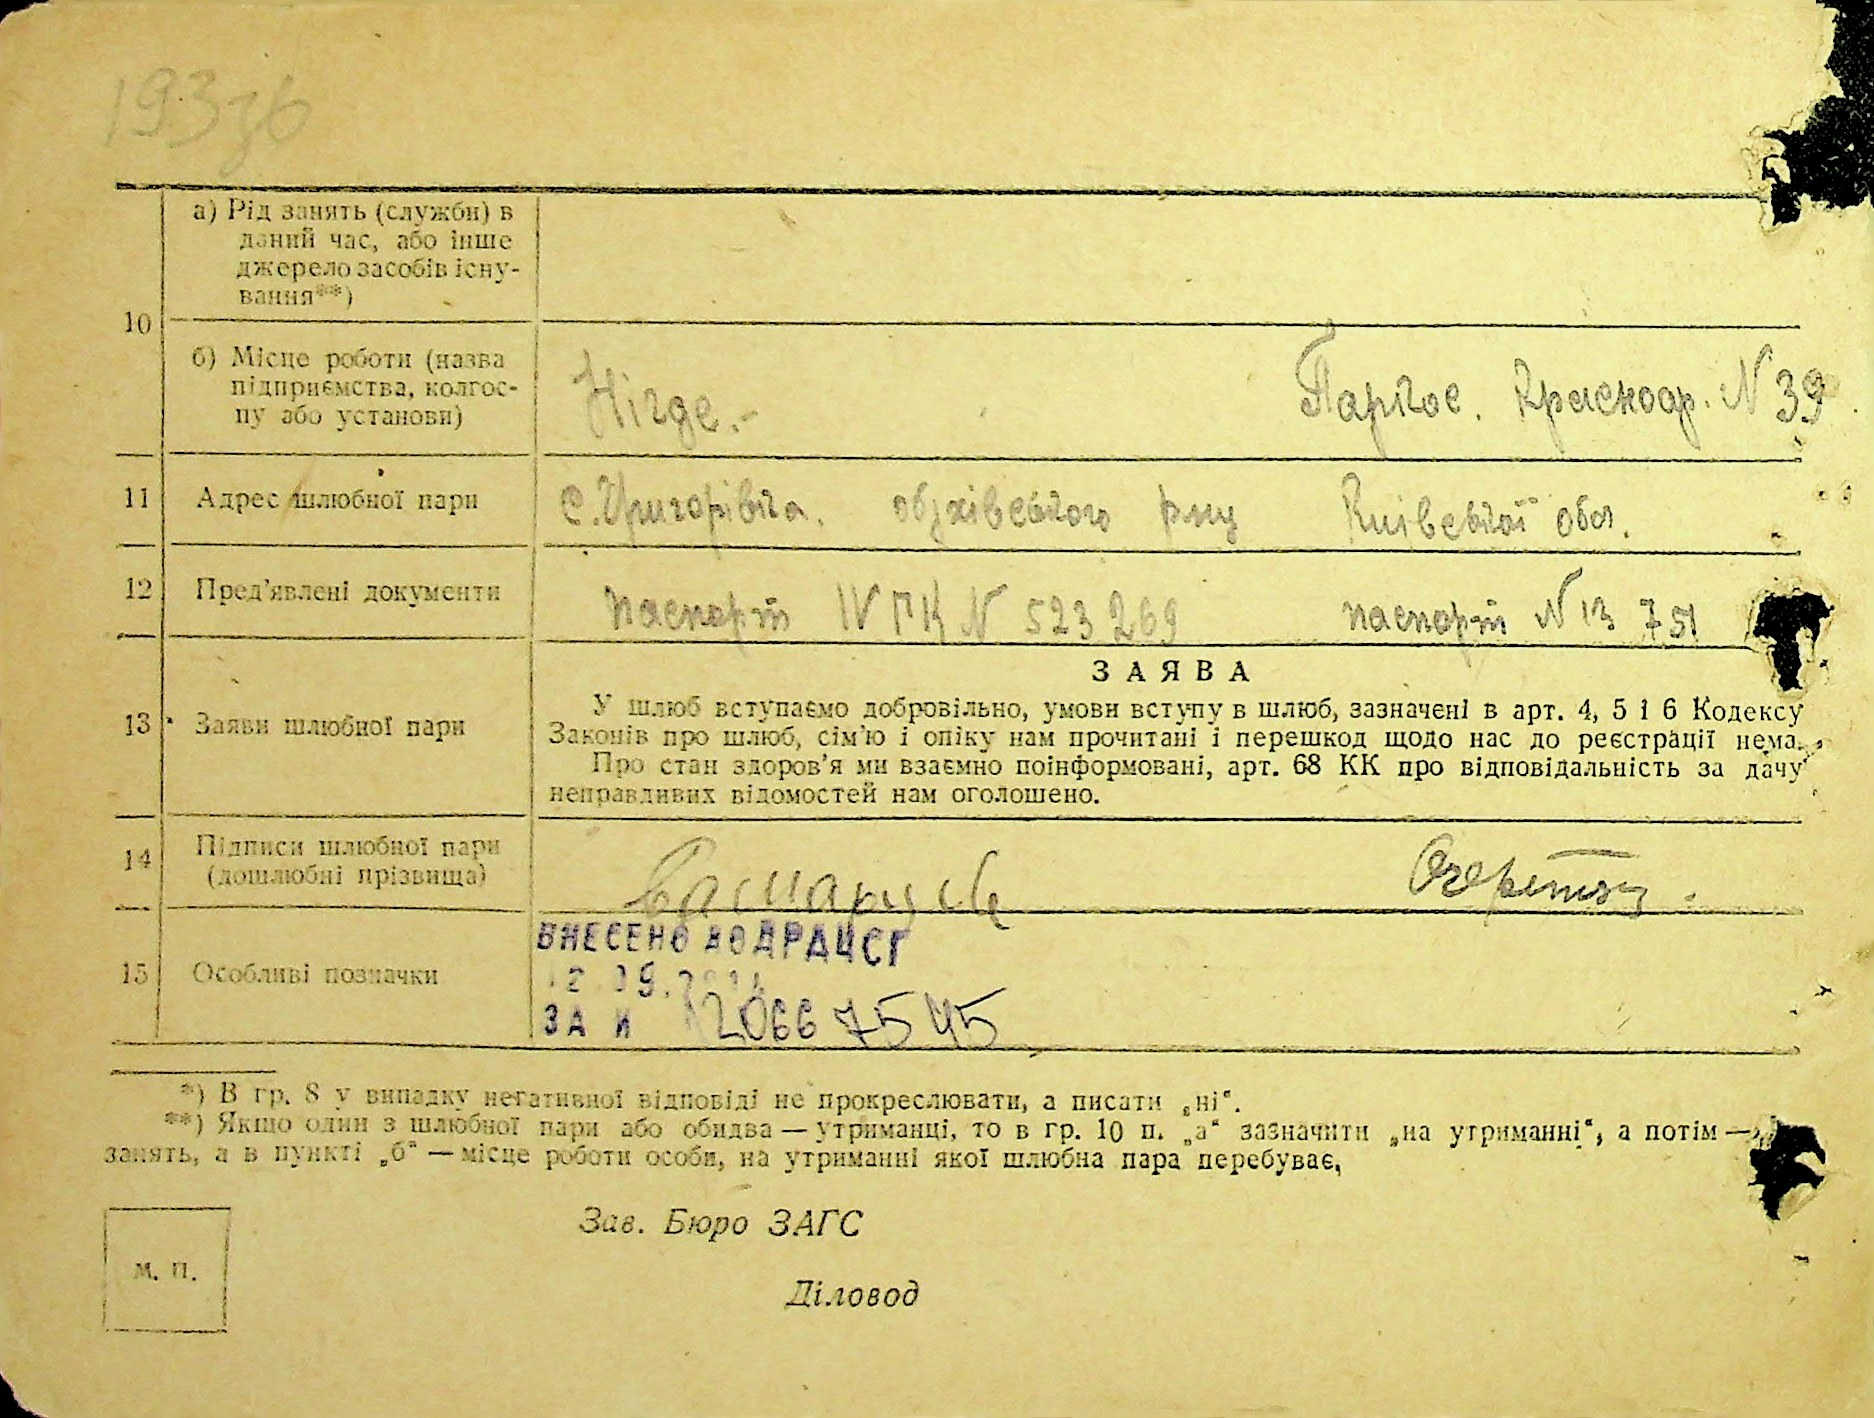 а) Рід занять (служби) в
даний час, або інше
джерело засобів існу-
вання**)
10
б) Місце роботи (назва
підприємства, колгос-
пу або установи)
Нігде.-
Паркос. Краснодар. N 39
11
Адрес шлюбної пари
с. Григорівка. обухівського р-ну Київської обл.
12
Пред'явлені документи
паспорт IV ПК N 523269
паспорт N 13 751
ЗАЯВА
13
Заяви шлюбної пари
У шлюб вступаємо добровільно, умови вступу в шлюб, зазначені в арт. 4, 5 і 6 Кодексу
Законів про шлюб, сім'ю і опіку нам прочитані і перешкод щодо нас до реєстрації нема.
Про стан здоров'я ми взаємно поінформовані, арт. 68 КК про відповідальність за дачу
неправдивих відомостей нам оголошено.
14
Підписи шлюбної пари
(дошлюбні прізвища)
15
Особливі позначки
ВНЕСЕНО ДО ДРАЦСГ
ЗА №
12066 7545
*) В гр. 8 у випадку негативної відповіді не прокреслювати, а писати „ні“.
**) Якщо один з шлюбної пари або обидва — утриманці, то в гр. 10 п. „а“ зазначити „на утриманні“, а потім —
занять, а в пункті „б“ — місце роботи особи, на утриманні якої шлюбна пара перебуває,
Зав. Бюро ЗАГС
м. п.
Діловод